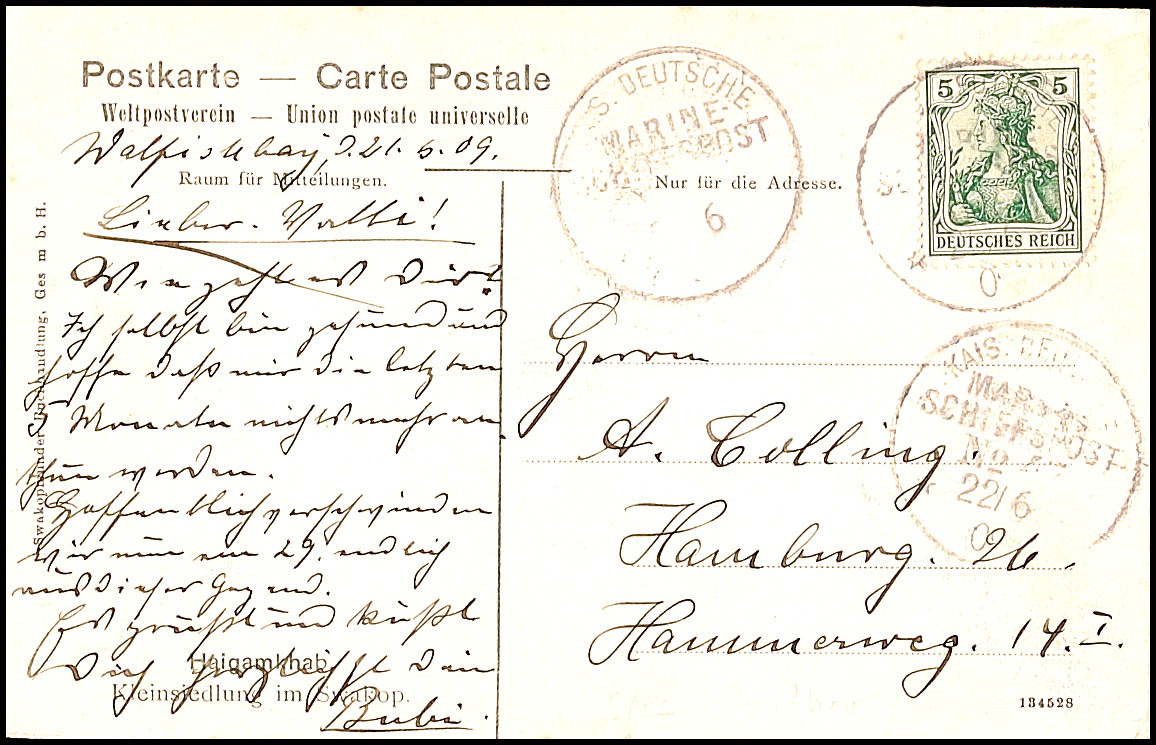 Postkarte — Carte Postale
Weltpostverein — Union postale universelle
Walfischbay, d. 21. 6. 09.
Raum für Mitteilungen.
Nur für die Adresse.
Lieber Valti!
Wie geht es Dir?
Ich selbst bin gesund und
hoffe daß mir die letzten
3 Monate nichts mehr an-
thun werden.
Hoffentlich verschwinden
wir nun am 29. endlich
aus dieser Gegend.
Es grüßt und küßt
Dich herzlichst Dein
Bubi.
Haigamkhab
Kleinsiedlung im Swakop.
Swakopmunder Buchhandlung, Ges m b. H.
S. DEUTSCHE
MARINE-
SCHIFFSPOST
6
5 5
DEUTSCHES REICH
KAIS. DEU
MAR
SCHIFFSPOST
No
22/6
Herrn
A. Colling.
Hamburg. 26.
Hammerweg. 14. I.
134528